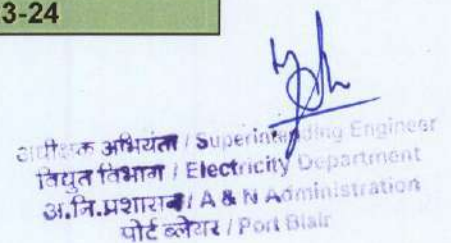 3-24
अधीक्षक अभियंता / Superintending Engineer
विद्युत विभाग / Electricity Department
अ.नि.प्रशासन / A & N Administration
पोर्ट ब्लेयर / Port Blair